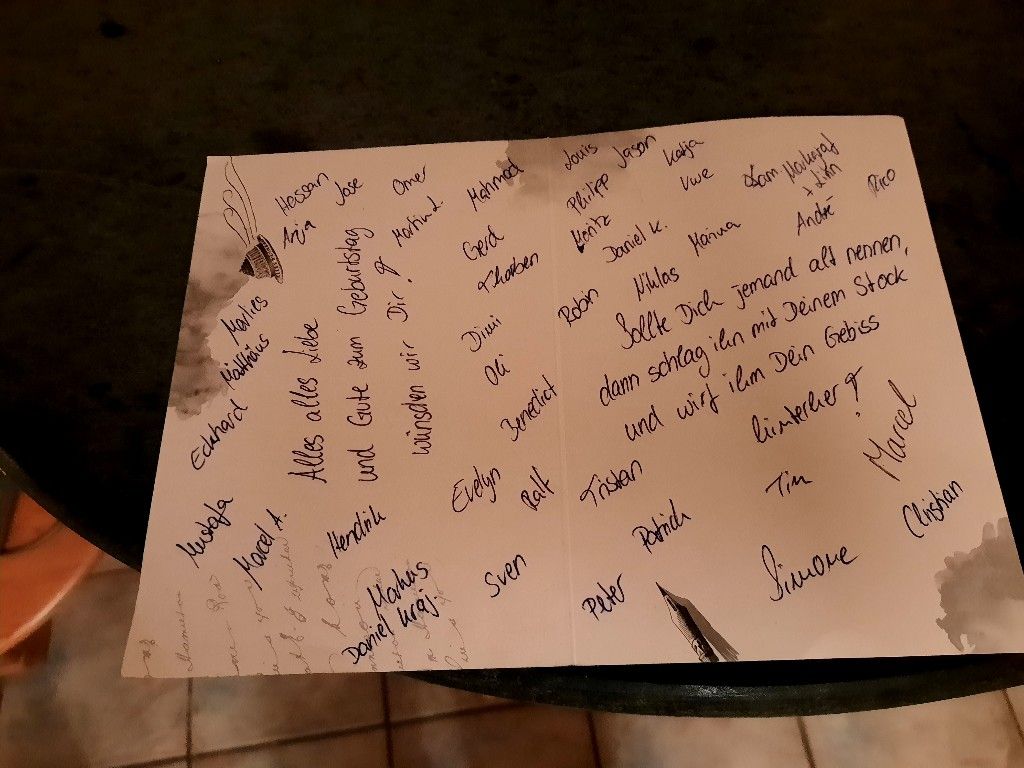 Hassan
Jose
Omer
Mahmod
Louis
Jason
Katja
Anja
Martin L.
Gerd
Philipp
Moritz
Uwe
Daniel K.
Markgraf
André
Rico
Marlies
Matthäus
Eckhard
Thorben
Robin
Niklas
Dimi
Oli
Benedict
Alles alles Liebe
und Gute zum Geburtstag
wünschen wir Dir!
Sollte Dich jemand alt nennen,
dann schlag ihn mit Deinem Stock
und wirf ihm Dein Gebiss
hinterher!
Mustafa
Marcel A.
Hendrik
Evelyn
Ralf
Tristan
Tim
Marcel
Markus
Daniel Kraj
Sven
Patrick
Peter
Simone
Christian